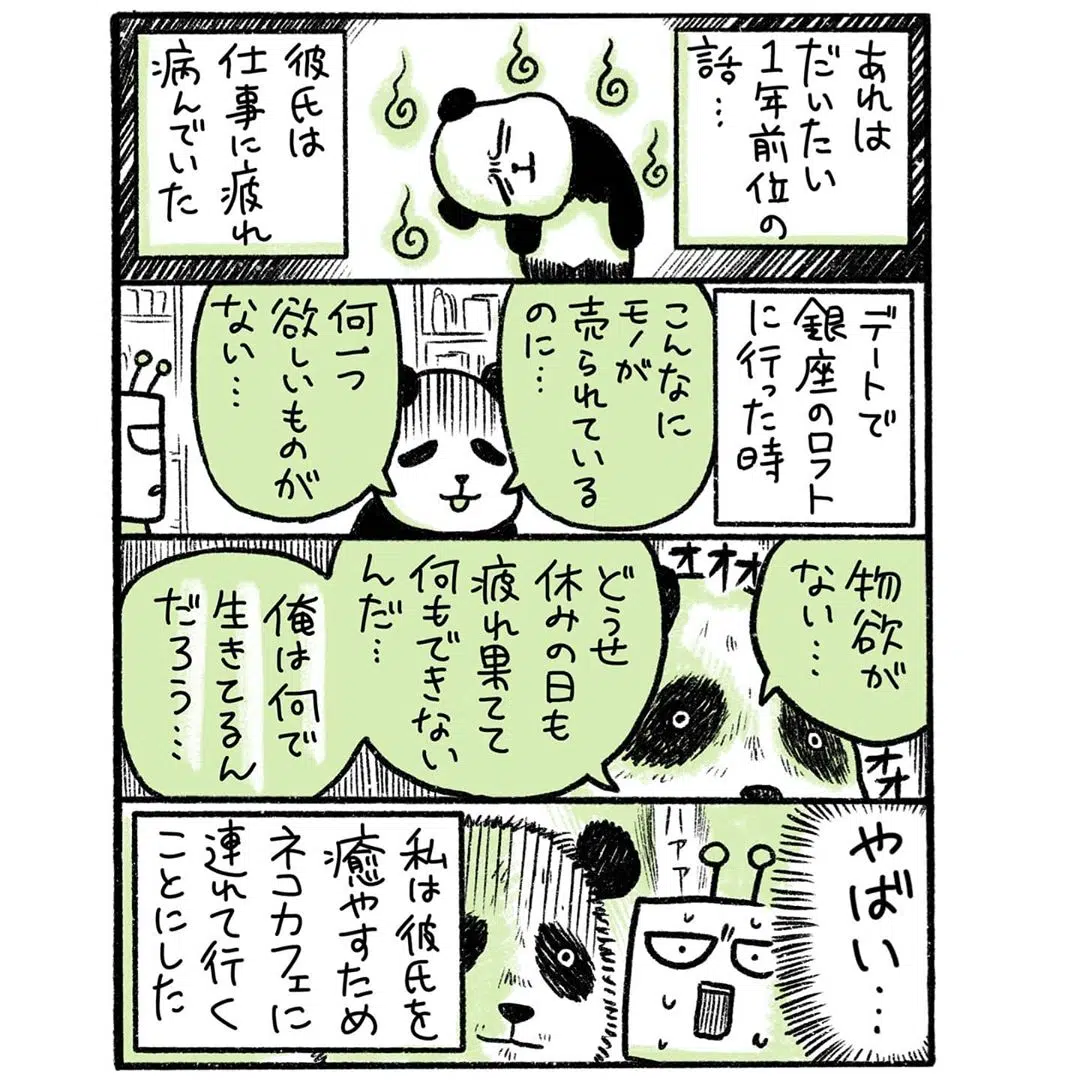 あれは
だいたい
1年前位の
話…
彼氏は
仕事に疲れ
病んでいた
デートで
銀座のロフト
に行った時
こんなに
モノが
売られている
のに…
何一つ
欲しいものが
ない…
物欲が
ない…
オオオ
オオ
どうせ
休みの日も
疲れ果てて
何もできない
んだ…
俺は何で
生きてるん
だろう…
やばい…
ハァァ
私は彼氏を
癒やすため
ネコカフェに
連れて行く
ことにした